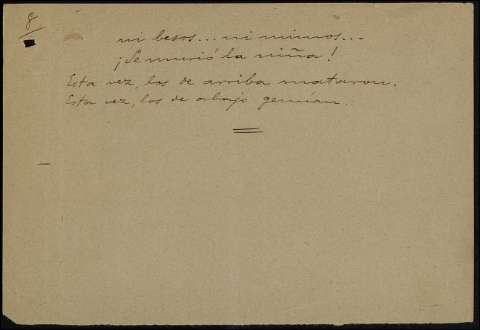 8
ni besos... ni mimos...
¡Se murió la niña!
Esta vez, los de arriba mataron.
Esta vez, los de abajo, gemían.